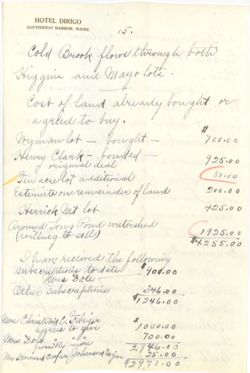 HOTEL DIRIGO
SOUTHWEST HARBOR, MAINE
15.
Cold Brook flows through both
Higgins and Mayo lots.
Cost of land already bought or
agreed to buy.
Wyman lot - bought - $ 700.00
Henry Clark - bonded - 925.00
original deal
Ten acre lot additional 80.00
Estimate on remainder of land 200.00
Herrick Mt lot 425.00
Around Long Pond watershed
(willing to sell) 1925.00
$4255.00
I have received the following
subscriptions to date
Mrs Dole $900.00
Other subscriptions 346.00
$1246.00
Mrs Christian C. Febiger
agreed to give 1000.00
Mrs Dole 700.00
2946.00
25.00
$2971.00